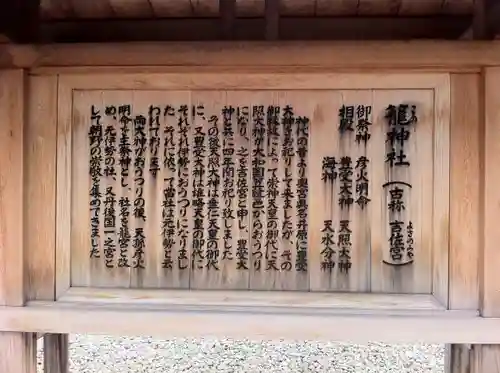 籠神社（古称 吉佐宮）
このじんじゃ よさのみや
御祭神 彦火明命 天照大神
相殿 豊受大神 天水分神
海神
神代の昔より奥宮眞名井原に豊受
大神をお祀りして来ましたが、その
御縁故によって崇神天皇の御代に天
照大神が大和国笠縫邑からおうつり
になり、之を吉佐宮と申し、豊受大
神と共に四年間お祀り致しました
その後天照大神は垂仁天皇の御代
に、又豊受大神は雄略天皇の御代に
それぞれ伊勢におうつりになりまし
た それに依って當社は元伊勢と云
われております
両大神がおうつりの後、天孫彦火
明命を主祭神とし、社名を籠宮と改
め、元伊勢の社、又丹後国一之宮と
して朝野の崇敬を集めてきました